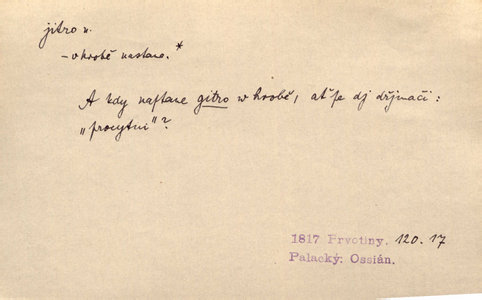 jitro n.
– v hrobě nastane.*
A kdy nastane gitro w hrobě, ať se dj dřjmači:
„procytni"?
1817 Prvotiny. 120.17
Palacký: Ossián.